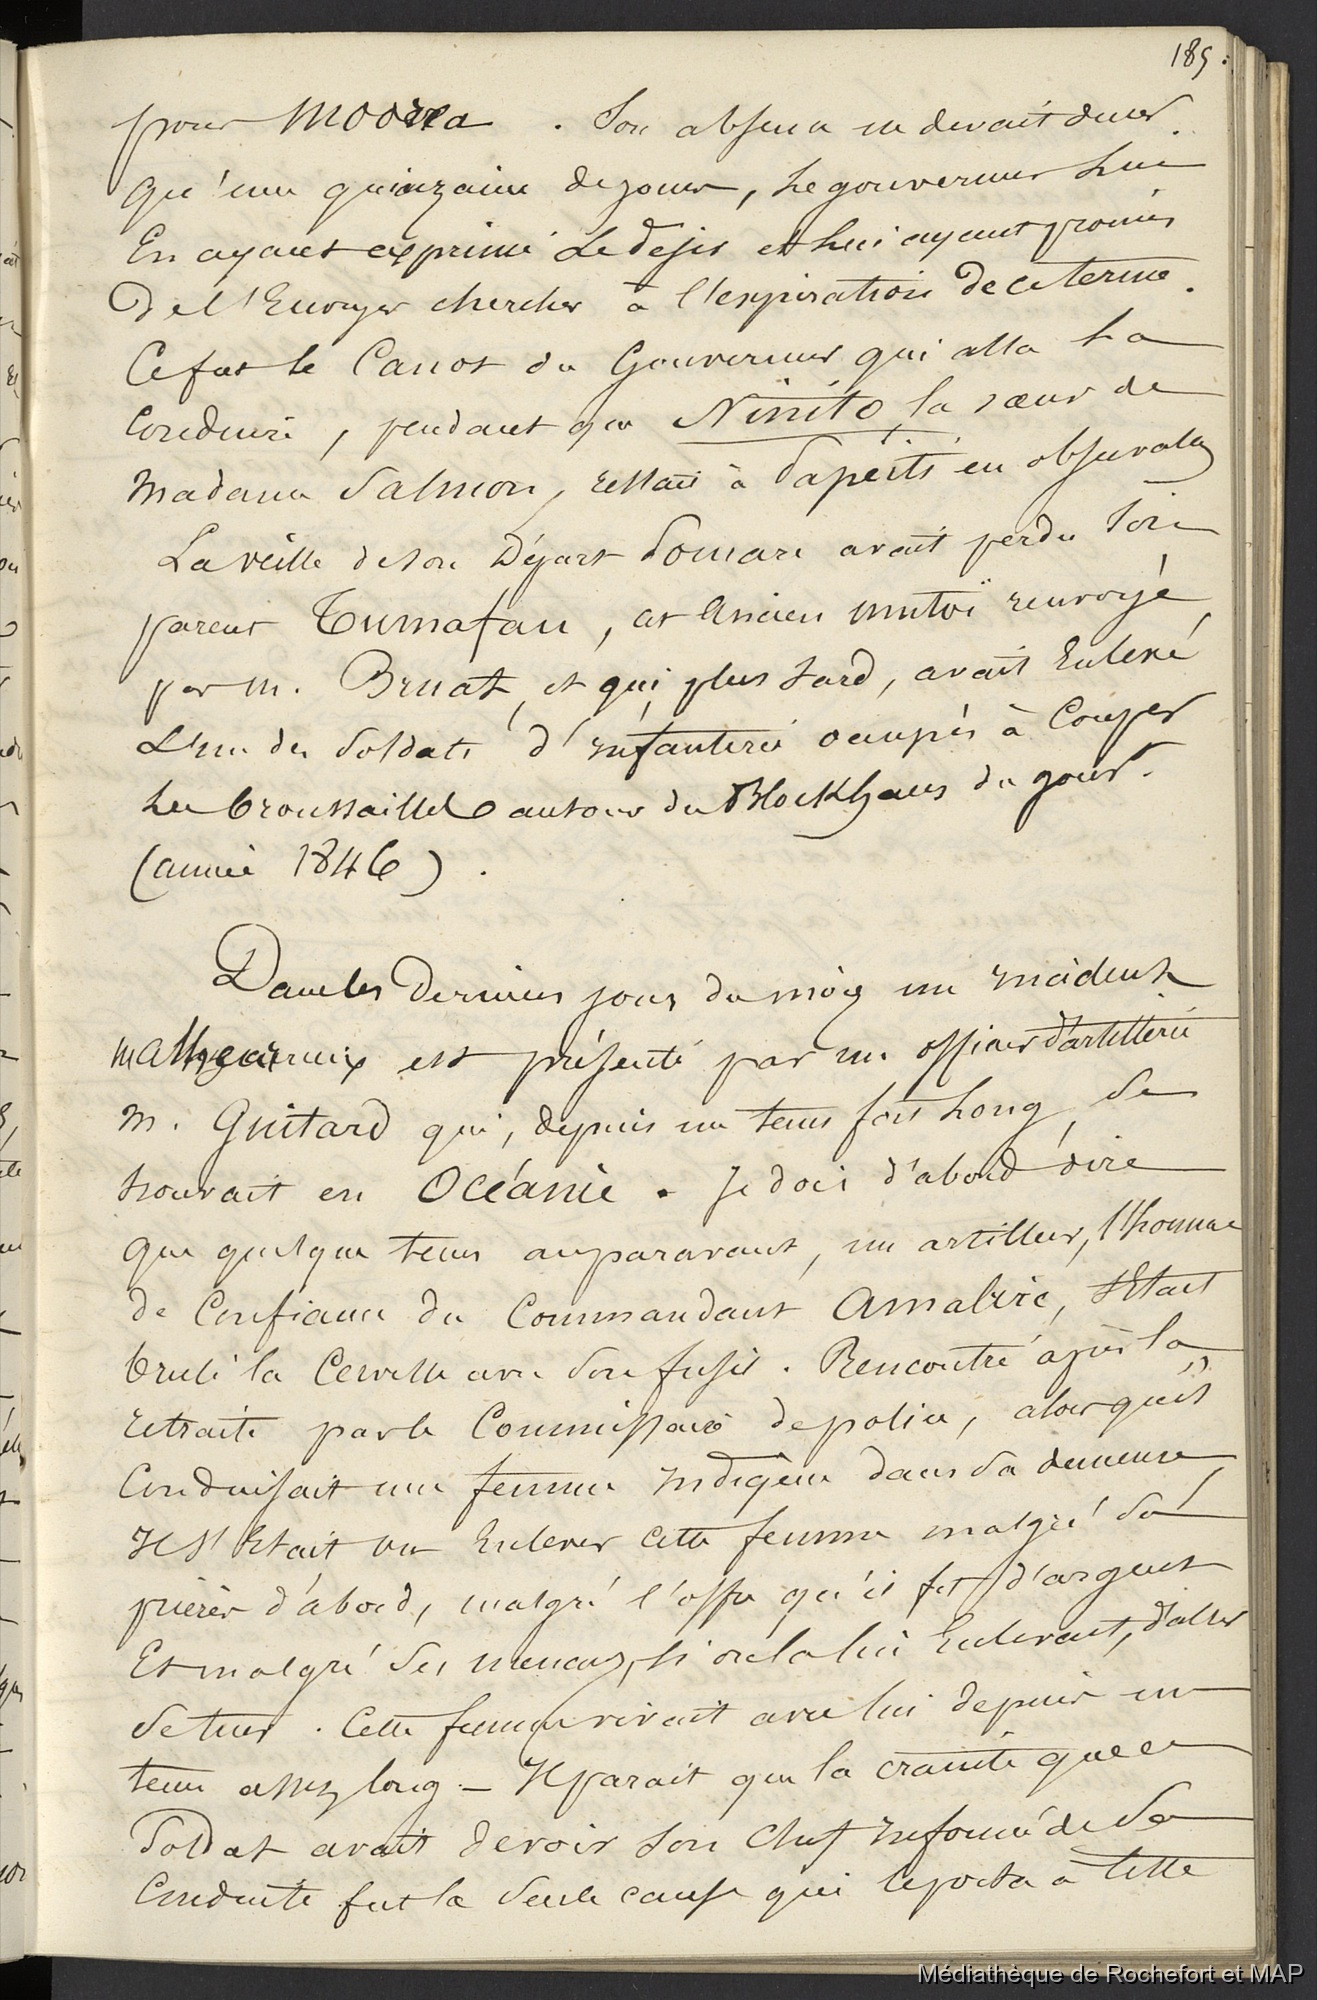 185.
pour Moorea. Son absence ne devait durer
qu'une quinzaine de jours, le gouverneur lui
En ayant exprimé le désir et lui ayant promis
De l'Envoyer chercher à l'expiration de ce terme.
Ce fut le Canot du Gouverneur qui alla la
Conduire, pendant que Ninito, la sœur de
Madame Salmon, restait à Papéiti en
La veille de son Départ Pomare avait perdu son
parent Tumafau, cet Ancien mutoï renvoyé
par M. Bruat, et qui, plus tard, avait Enlevé
L'un des Soldats d'infanterie occupés à Couper
les broussailles autour du Blockhaus du gouvt.
(année 1846).
Dans les Derniers jours du mois un incident
malheureux est présenté par un officier d'artillerie
M. Guitard qui, depuis un tems fort long, se
trouvait en Océanie. Je dois d'abord dire
que quelque tems auparavant, un artilleur, l'homme
de Confiance du Commandant Amalric, s'Etait
brulé la Cervelle avec son fusil. Rencontré après la
retraite par le Commissaire de police, alors qu'il
Conduisait une femme indigène dans sa demeure,
Il s'Etait vu Enlever cette femme malgré sa
prière d'abord, malgré l'offre qu'il fit d'argent
Et malgré ses menaces, si on la lui Enlevait, d'aller
se tuer. Cette femme vivait avec lui depuis un
tems assez long – Il parait que la crainte que ce
Soldat avait de voir son Chef informé de sa
Conduite fut la seule cause qui le porta à cette
Médiathèque de Rochefort et MAP